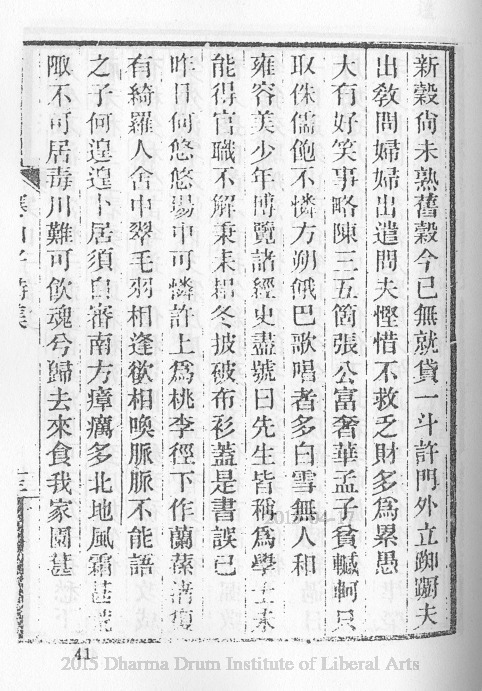 新穀尚未熟舊穀今已無就貸一斗許門外立踟躕夫
出教問婦婦出遣問夫慳惜不救乏財多為累愚
大有好笑事略陳三五箇張公富奢華孟子貧轗軻只
取侏儒飽不憐方朔餓巴歌唱者多白雪無人和
雍容美少年博覽諸經史盡號曰先生皆稱為學士未
能得官職不解秉耒耜冬披破布衫蓋是書誤己
昨日何悠悠場中可憐許上為桃李徑下作蘭蓀渚復
有綺羅人舍中翠毛羽相逢欲相喚脈脈不能語
之子何遑遑卜居須自審南方瘴癘多北地風霜甚荒
陬不可居毒川難可飲魂兮歸去來食我家園葚
寒山子詩集
十三
41
2015 Dharma Drum Institute of Liberal Arts